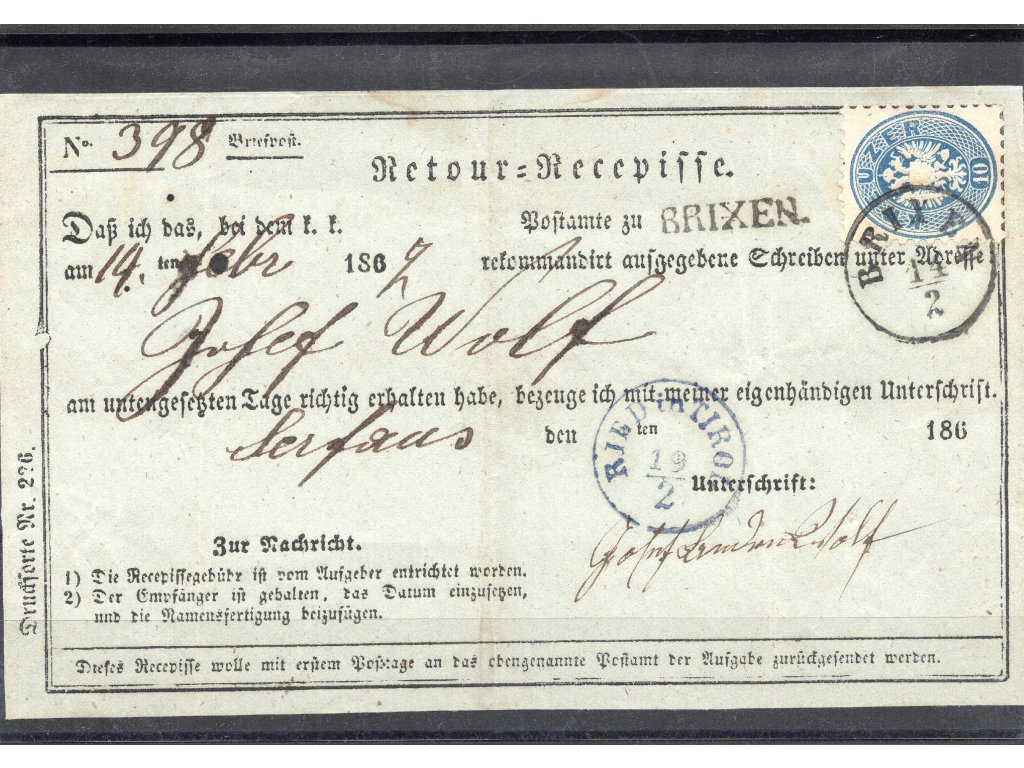 No. 398 Briefpost.
Retour-Recepisse.
10 KREUZER
Daß ich das, bei dem k. k. Postamte zu BRIXEN.
am 14. ten Febr 1867 rekommandirt aufgegebene Schreiben unter Adresse:
BRIXEN
14
2
Josef Wolf
am untengesetzten Tage richtig erhalten habe, bezeuge ich mit meiner eigenhändigen Unterschrift.
Serfaus den ten 186
RIED in TIROL
19
2
Unterschrift:
Josef Wolf
Zur Nachricht.
1) Die Recepissegebühr ist vom Aufgeber entrichtet worden.
2) Der Empfänger ist gehalten, das Datum einzusetzen,
und die Namensfertigung beizufügen.
Dieses Recepisse wolle mit erstem Posttage an das obengenannte Postamt der Aufgabe zurückgesendet werden.
Drucksorte Nr. 226.